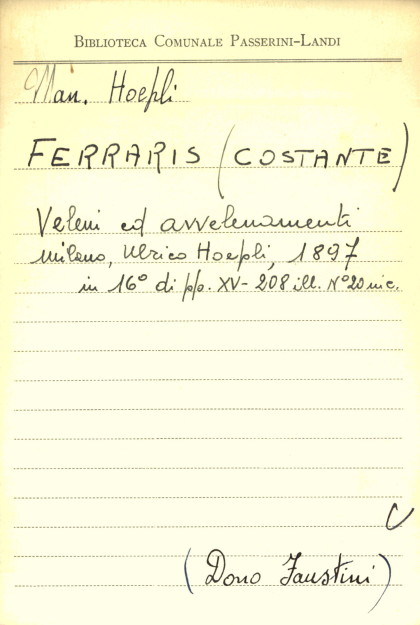 BIBLIOTECA COMUNALE PASSERINI-LANDI
Man. Hoepli
FERRARIS (COSTANTE)
Veleni ed avvelenamenti
Milano, Ulrico Hoepli, 1897
in 16° di pp. XV-208 ill. N° 20 inc.
C
(Dono Faustini)